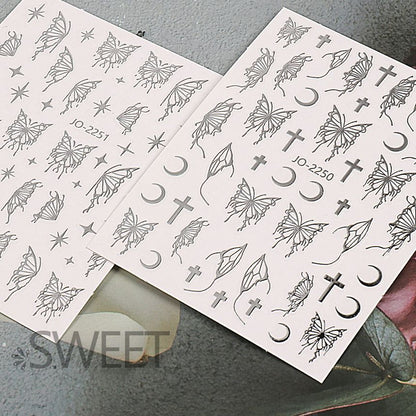 JO-2251
JO-2250
S.WEET